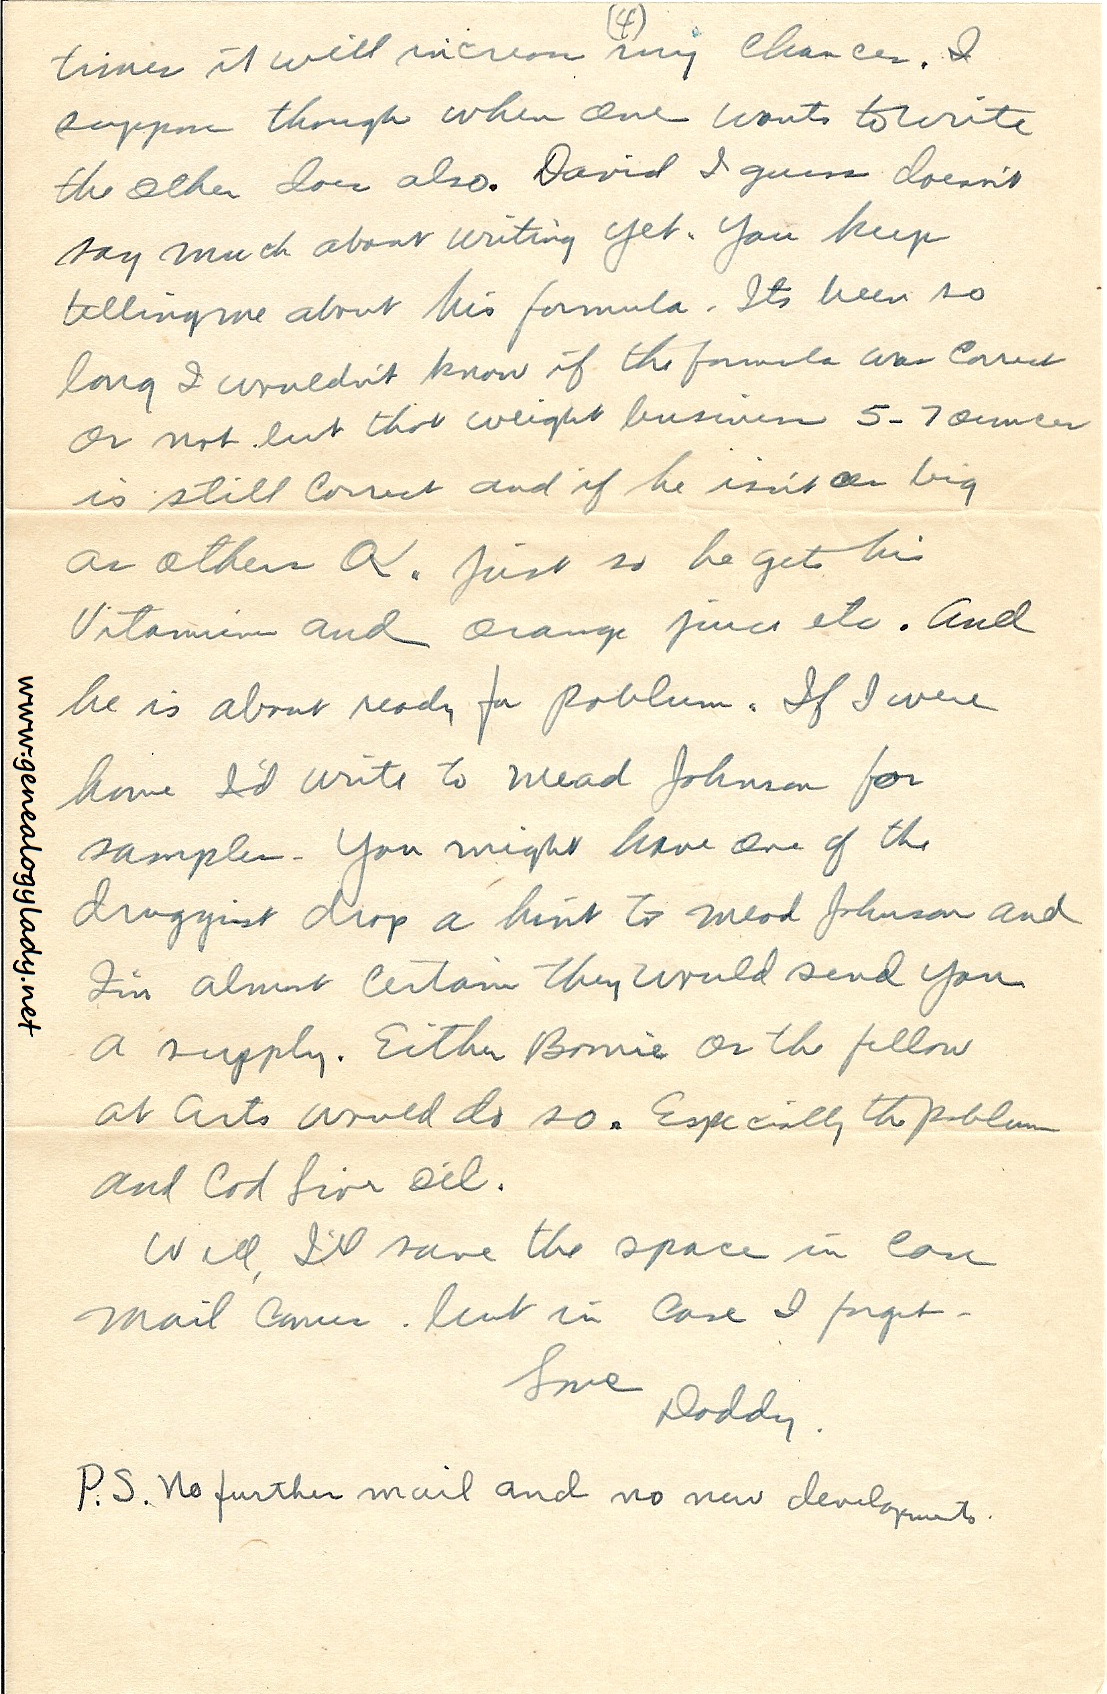 (4)
times it will increase my chances. I
suppose though when one wants to write
the other does also. David I guess doesn't
say much about writing yet. You keep
telling me about his formula. Its been so
long I wouldn't know if the formula was correct
or not but that weight business 5-7 ounces
is still correct and if he isn't as big
as others OK. Just so he gets his
Vitamins and orange juice etc. And
he is about ready for pablum. If I were
home I'd write to Mead Johnson for
samples. You might have one of the
druggist drop a hint to Mead Johnson and
I'm almost certain they would send you
a supply. Either Bonnie or the fellow
at Arts would do so. Especially the pablum
and Cod liver oil.
Well, I'll save the space in case
mail comes. but in case I forget-
Love
Daddy.
P.S. No further mail and no new developments.
www.genealogylady.net